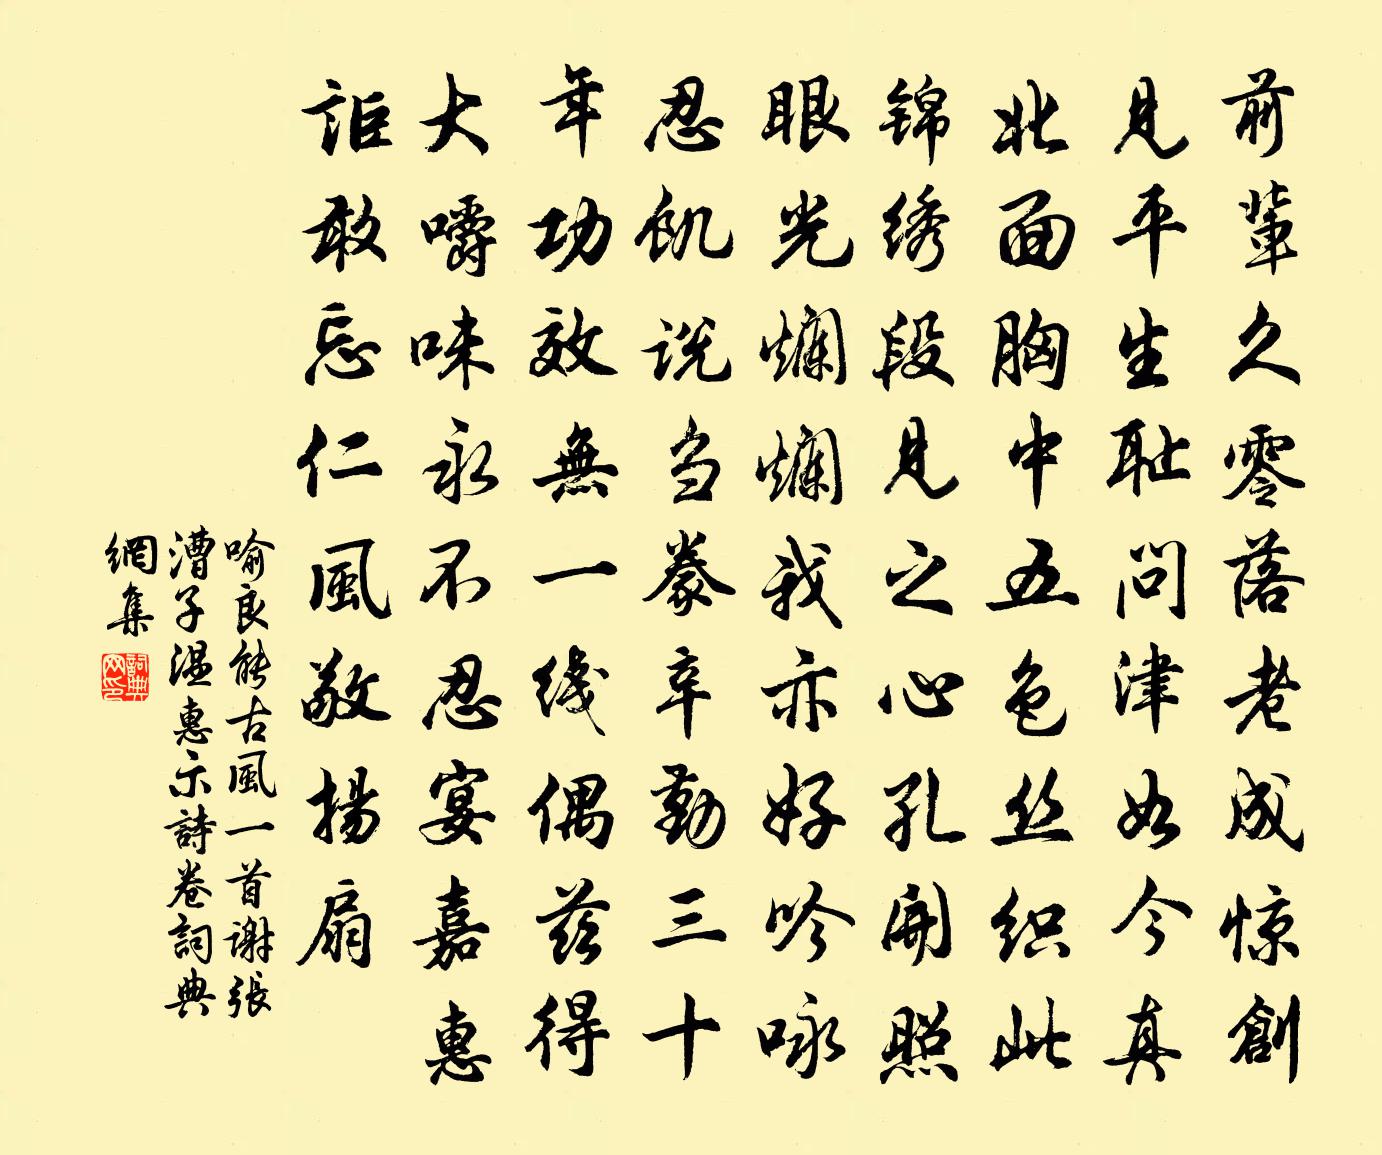 前輩久零落老成惊創
見平生耻问津如今真
北面胸中五色丝织此
锦绣段見之心孔開照
眼光爛爛我亦好吟咏
忍飢说刍豢辛勤三十
年功效無一线偶兹得
大嚼味永不忍宴嘉惠
詎敢忘仁風敬揚扇
喻良能古風一首谢張
漕子温惠示詩卷詞典
網集
詞典网印